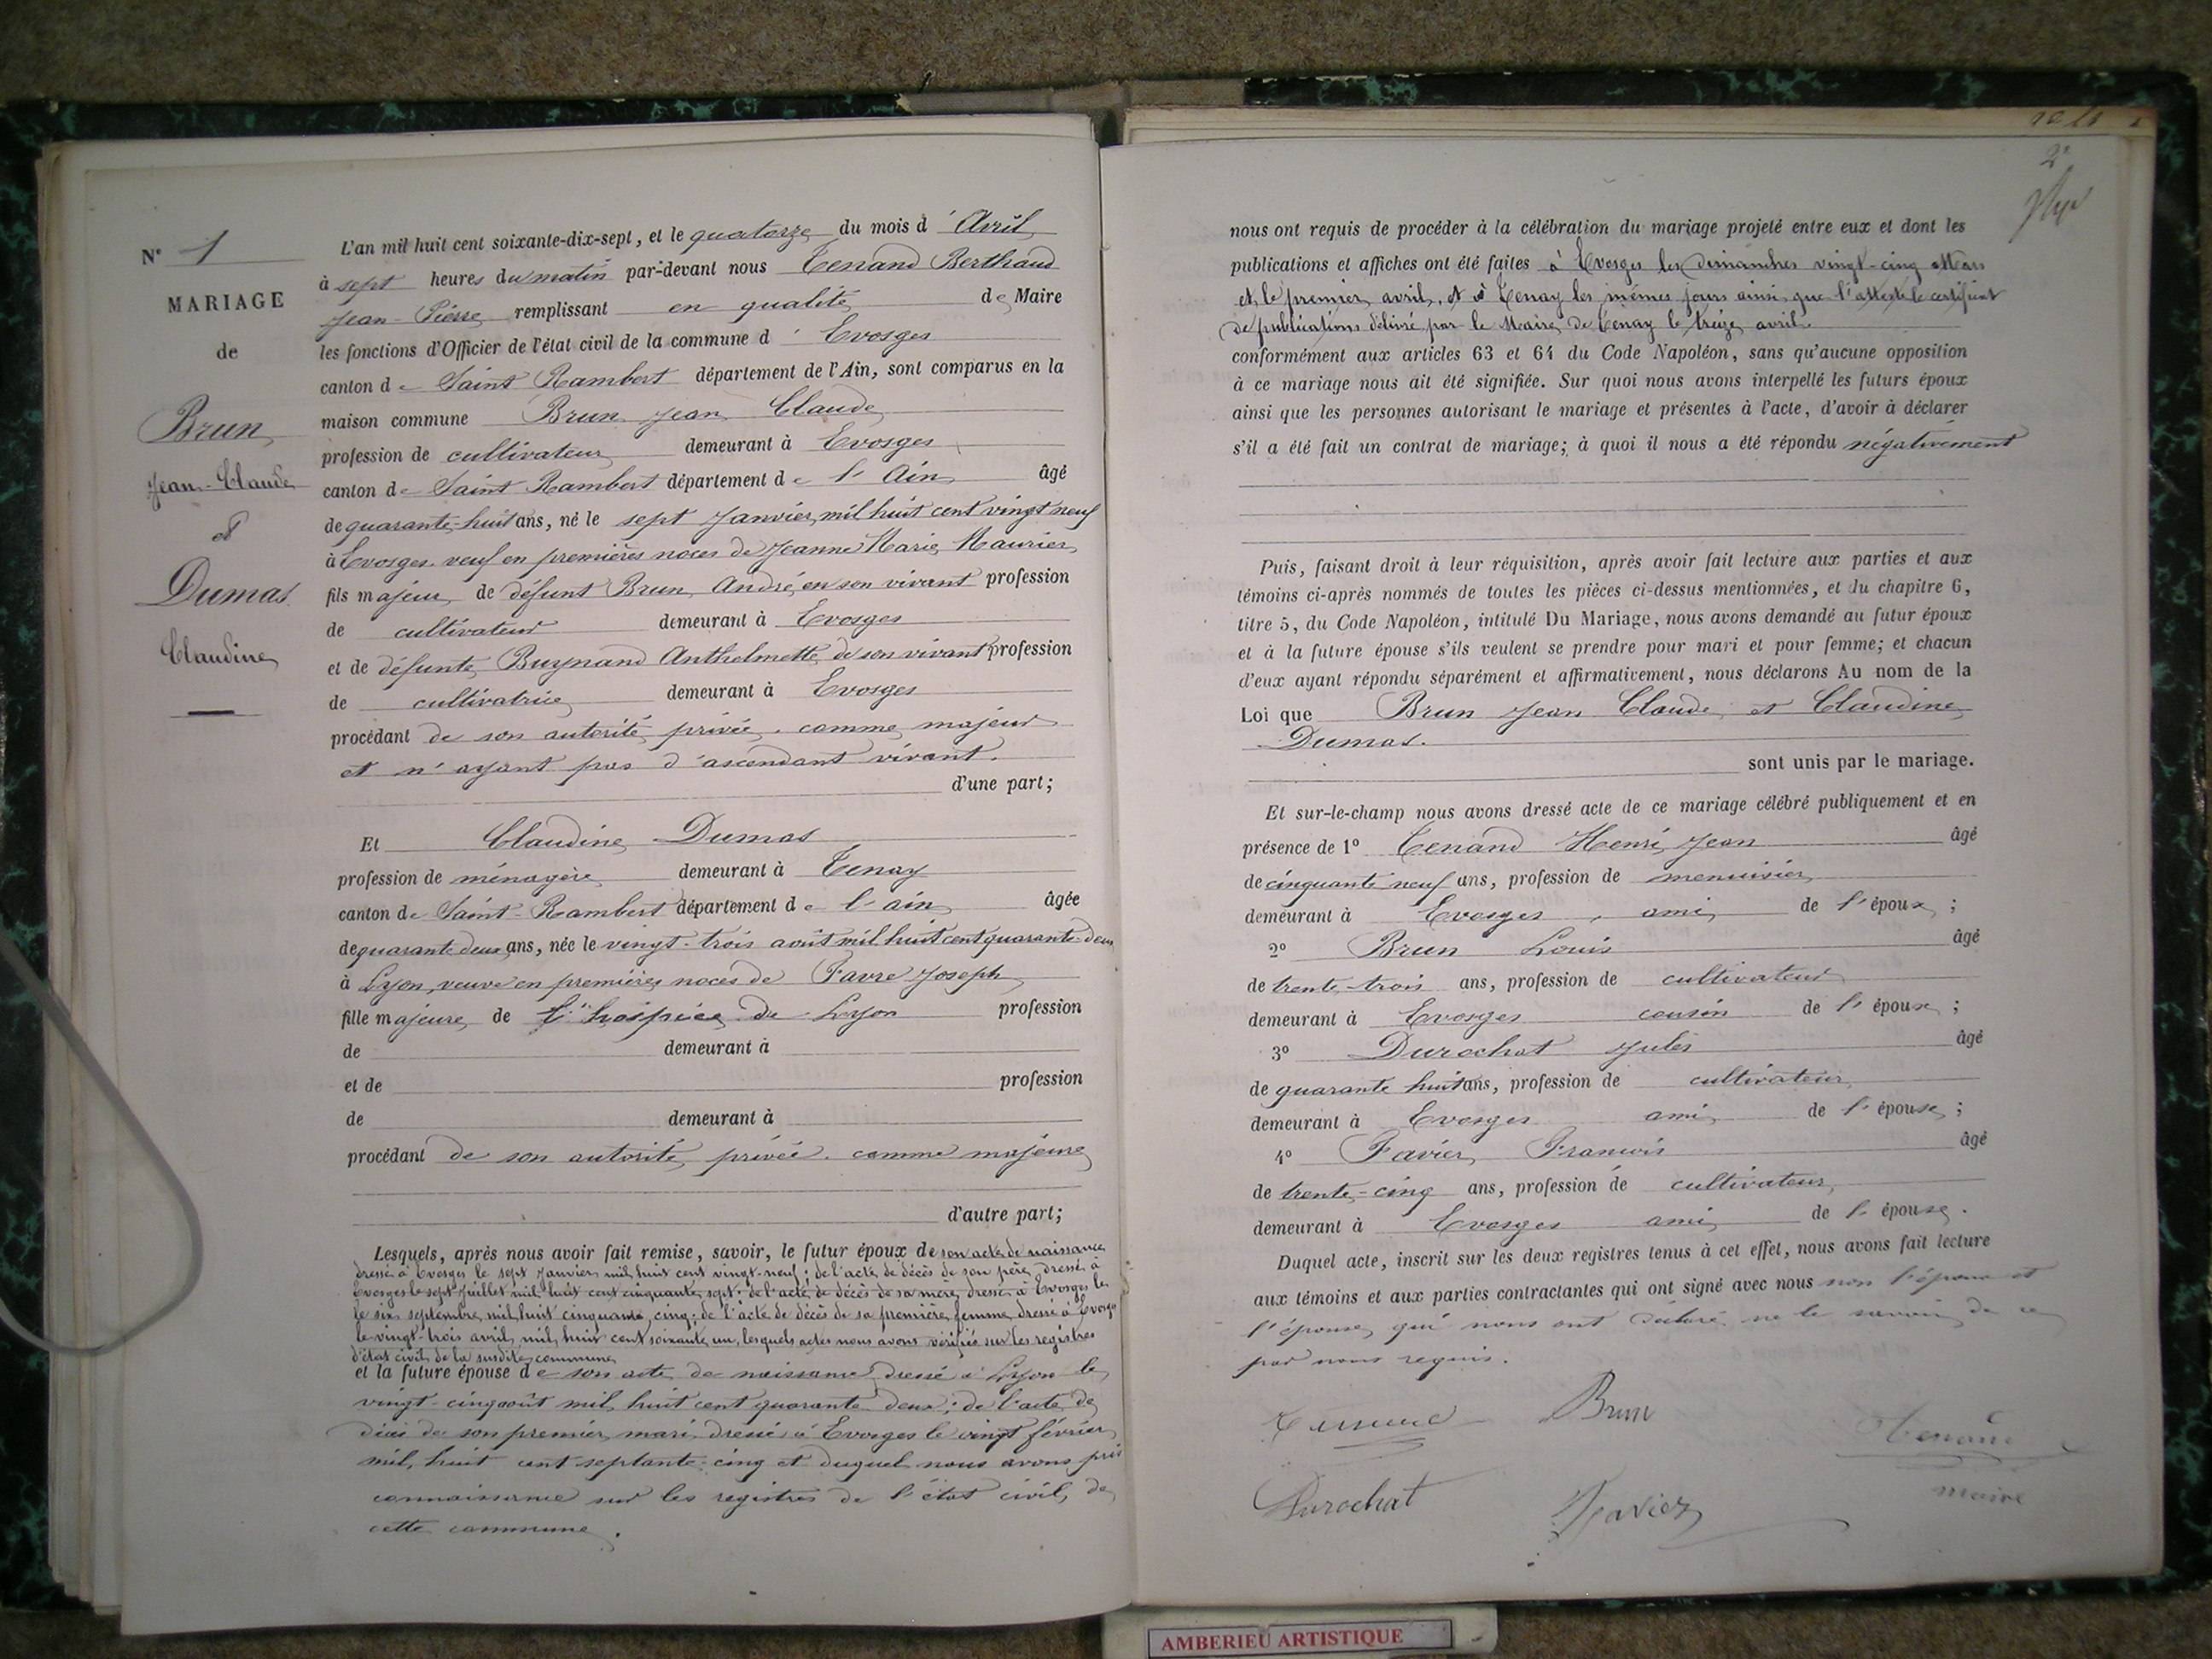 N° 1
MARIAGE
de
Brun
Jean-Claude
et
Dumas
Claudine
L'an mil huit cent soixante-dix-sept, et le quatorze du mois d'Avril
à sept heures du matin par-devant nous Tenand Berthaud
Jean-Pierre remplissant en qualité de Maire
les fonctions d'Officier de l'état civil de la commune d'Evosges
canton de Saint Rambert département de l'Ain, sont comparus en la
maison commune Brun Jean Claude
profession de cultivateur demeurant à Evosges
canton de Saint Rambert département de l'Ain âgé
de quarante-huit ans, né le sept Janvier mil huit cent vingt neuf
à Evosges veuf en premières noces de Jeanne Marie Maurier
fils majeur de défunt Brun André en son vivant profession
de cultivateur demeurant à Evosges
et de défunte Buynand Anthelmette de son vivant profession
de cultivatrice demeurant à Evosges
procédant de son autorité privée comme majeur
et n'ayant pas d'ascendant vivant.
d'une part;
Et Claudine Dumas
profession de ménagère demeurant à Tenay
canton de Saint-Rambert département de l'ain âgée
de quarante deux ans, née le vingt-trois août mil huit cent quarante-deux
à Lyon, veuve en premières noces de Favre Joseph
fille majeure de l'hospice de Lyon profession
de demeurant à
et de profession
de demeurant à
procédant de son autorité privée comme majeure
d'autre part;
Lesquels, après nous avoir fait remise, savoir, le futur époux de son acte de naissance
dressé à Evosges le sept Janvier mil huit cent vingt-neuf; de l'acte de décès de son père dressé à
Evosges le sept Juillet mil huit cent cinquante sept; de l'acte de décès de sa mère dressé à Evosges le
le six septembre mil huit cinquante cinq; de l'acte de décès de sa première femme dressé à Evosges
le vingt-trois avril mil huit cent soixante un, lesquels actes nous avons vérifiés sur les registres
d'état civil de la susdite commune
et la future épouse de son acte de naissance dressé à Lyon le
vingt-cinq août mil huit cent quarante deux; de l'acte de
décès de son premier mari dressé à Evosges le vingt février
mil huit cent septante-cinq et duquel nous avons pris
connaissance sur les registres de l'état civil de
cette commune.
2e
nous ont requis de procéder à la célébration du mariage projeté entre eux et dont les
publications et affiches ont été faites à Evosges les dimanches vingt-cinq Mars
et le premier avril, et à Tenay les mêmes jours ainsi que l'atteste le certificat
de publications délivré par le Maire de Tenay le treize avril.
conformément aux articles 63 et 64 du Code Napoléon, sans qu'aucune opposition
à ce mariage nous ait été signifiée. Sur quoi nous avons interpellé les futurs époux
ainsi que les personnes autorisant le mariage et présentes à l'acte, d'avoir à déclarer
s'il a été fait un contrat de mariage; à quoi il nous a été répondu négativement
Puis, faisant droit à leur réquisition, après avoir fait lecture aux parties et aux
témoins ci-après nommés de toutes les pièces ci-dessus mentionnées, et du chapitre 6,
titre 5, du Code Napoléon, intitulé Du Mariage, nous avons demandé au futur époux
et à la future épouse s'ils veulent se prendre pour mari et pour femme; et chacun
d'eux ayant répondu séparément et affirmativement, nous déclarons Au nom de la
Loi que Brun Jean Claude et Claudine
Dumas.
sont unis par le mariage.
Et sur-le-champ nous avons dressé acte de ce mariage célébré publiquement et en
présence de 1° Tenand Henri Jean âgé
de cinquante neuf ans, profession de menuisier
demeurant à Evosges, ami de l'époux;
2° Brun Louis âgé
de trente-trois ans, profession de cultivateur
demeurant à Evosges cousin de l'époux;
3° Durochat Jules âgé
de quarante huit ans, profession de cultivateur
demeurant à Evosges ami de l'épouse;
4° Favier Francois âgé
de trente-cinq ans, profession de cultivateur
demeurant à Evosges ami de l'épouse.
Duquel acte, inscrit sur les deux registres tenus à cet effet, nous avons fait lecture
aux témoins et aux parties contractantes qui ont signé avec nous non l'époux et
l'épouse qui nous ont déclaré ne le savoir de ce
par nous requis.
Tenand Brun Tenand
maire
Durochat Favier
AMBERIEU ARTISTIQUE